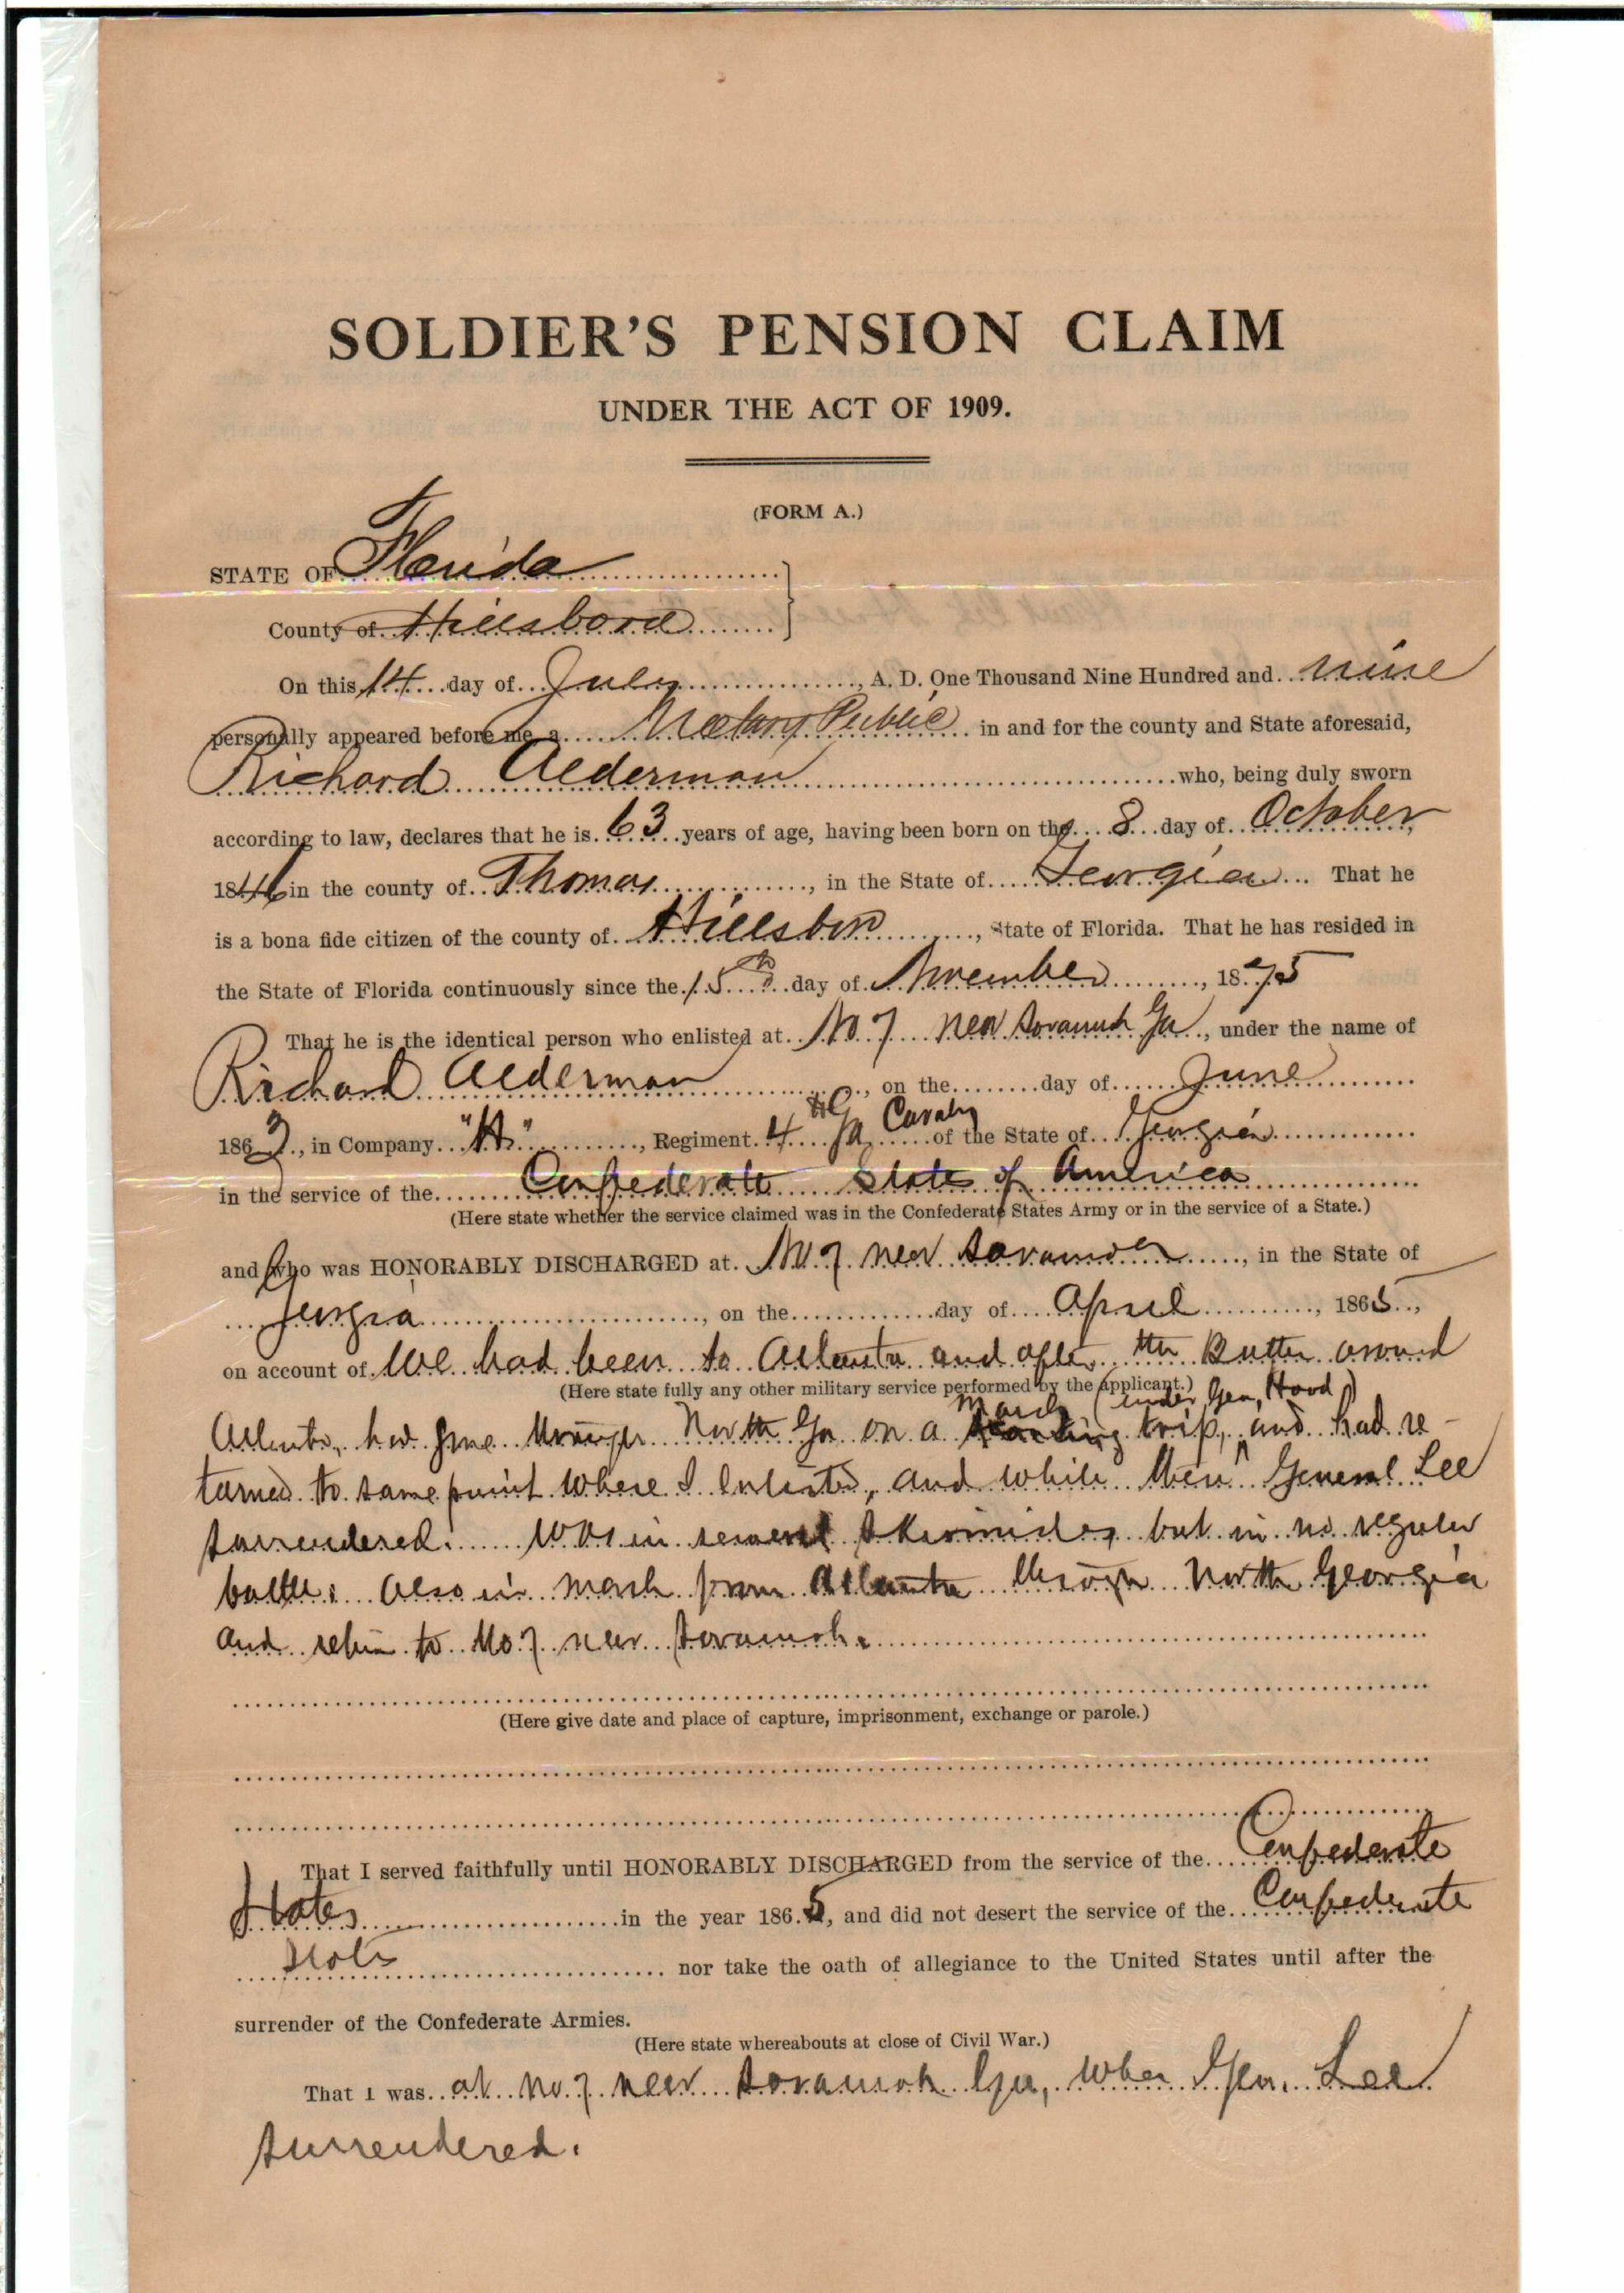 SOLDIER'S PENSION CLAIM
UNDER THE ACT OF 1909.
(FORM A.)
STATE OF Florida
County of Hillsboro
On this 14 day of July, A. D. One Thousand Nine Hundred and nine
personally appeared before me a Notary Public in and for the county and State aforesaid,
Richard Alderman who, being duly sworn
according to law, declares that he is 63 years of age, having been born on the 8 day of October,
1846 in the county of Thomas, in the State of Georgia. That he
is a bona fide citizen of the county of Hillsboro, State of Florida. That he has resided in
the State of Florida continuously since the 15th day of November, 1875
That he is the identical person who enlisted at No 7 near Savannah Ga, under the name of
Richard Alderman, on the day of June
1863, in Company "H", Regiment 4 Ga Cavalry of the State of Georgia
in the service of the Confederate States of America
(Here state whether the service claimed was in the Confederate States Army or in the service of a State.)
and who was HONORABLY DISCHARGED at No 7 near Savannah, in the State of
Georgia, on the day of April, 1865,
on account of We had been to Atlanta and after the Battle around
(Here state fully any other military service performed by the applicant.)
Atlanta, had gone through North Ga on a March trip, (under Gen, Hood) and had re-
turned to same point where I enlisted, and while there General Lee
surrendered. Was in several skirmishes, but in no regular
battle: Also in march from Atlanta through North Georgia
and return to No 7 near Savannah.
(Here give date and place of capture, imprisonment, exchange or parole.)
That I served faithfully until HONORABLY DISCHARGED from the service of the Confederate
States in the year 1865, and did not desert the service of the Confederate
States nor take the oath of allegiance to the United States until after the
surrender of the Confederate Armies.
(Here state whereabouts at close of Civil War.)
That I was at No. 7 near Savannah Ga, when Gen. Lee
surrendered.